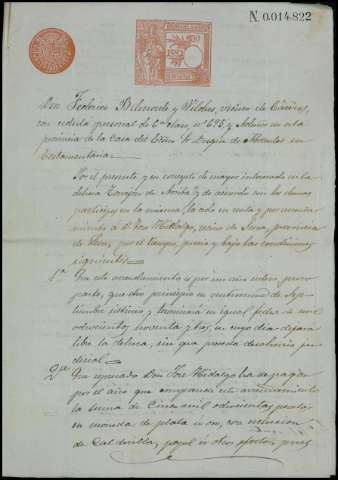 N. 0.014.822
Don Federico Belmonte y Vilches, vecino de Cáceres,
con cédula personal de 6ª clase, nº 695, y Admor en esta
provincia de la Casa del Exmo Sr Duque de Abrantes en
testamentaria
Por el presente y en concepto de mayor interesado en la
dehesa de Arriba y de acuerdo con los demas
participes en la misma, la doy en renta y por
miento a D. José Hidalgo, vecino de provincia
de por el tiempo, precio y bajo las condiciones
siguientes.
1ª Que este arrendamiento es por un año entero
que dió principio en veintinueve de Sep-
tiembre último y terminará en igual fecha de mil
ochocientos noventa y tres, en cuyo dia dejará
libre la dehesa, sin que preceda desahucio ju-
dicial.
2ª Que expresado Don José Hidalgo ha de pagar
por el año que comprende este arrendamiento
la suma de Cinco mil ochocientas pesetas
en moneda de plata ú oro, con esclusion
de calderilla, papel ú otros efectos, pues